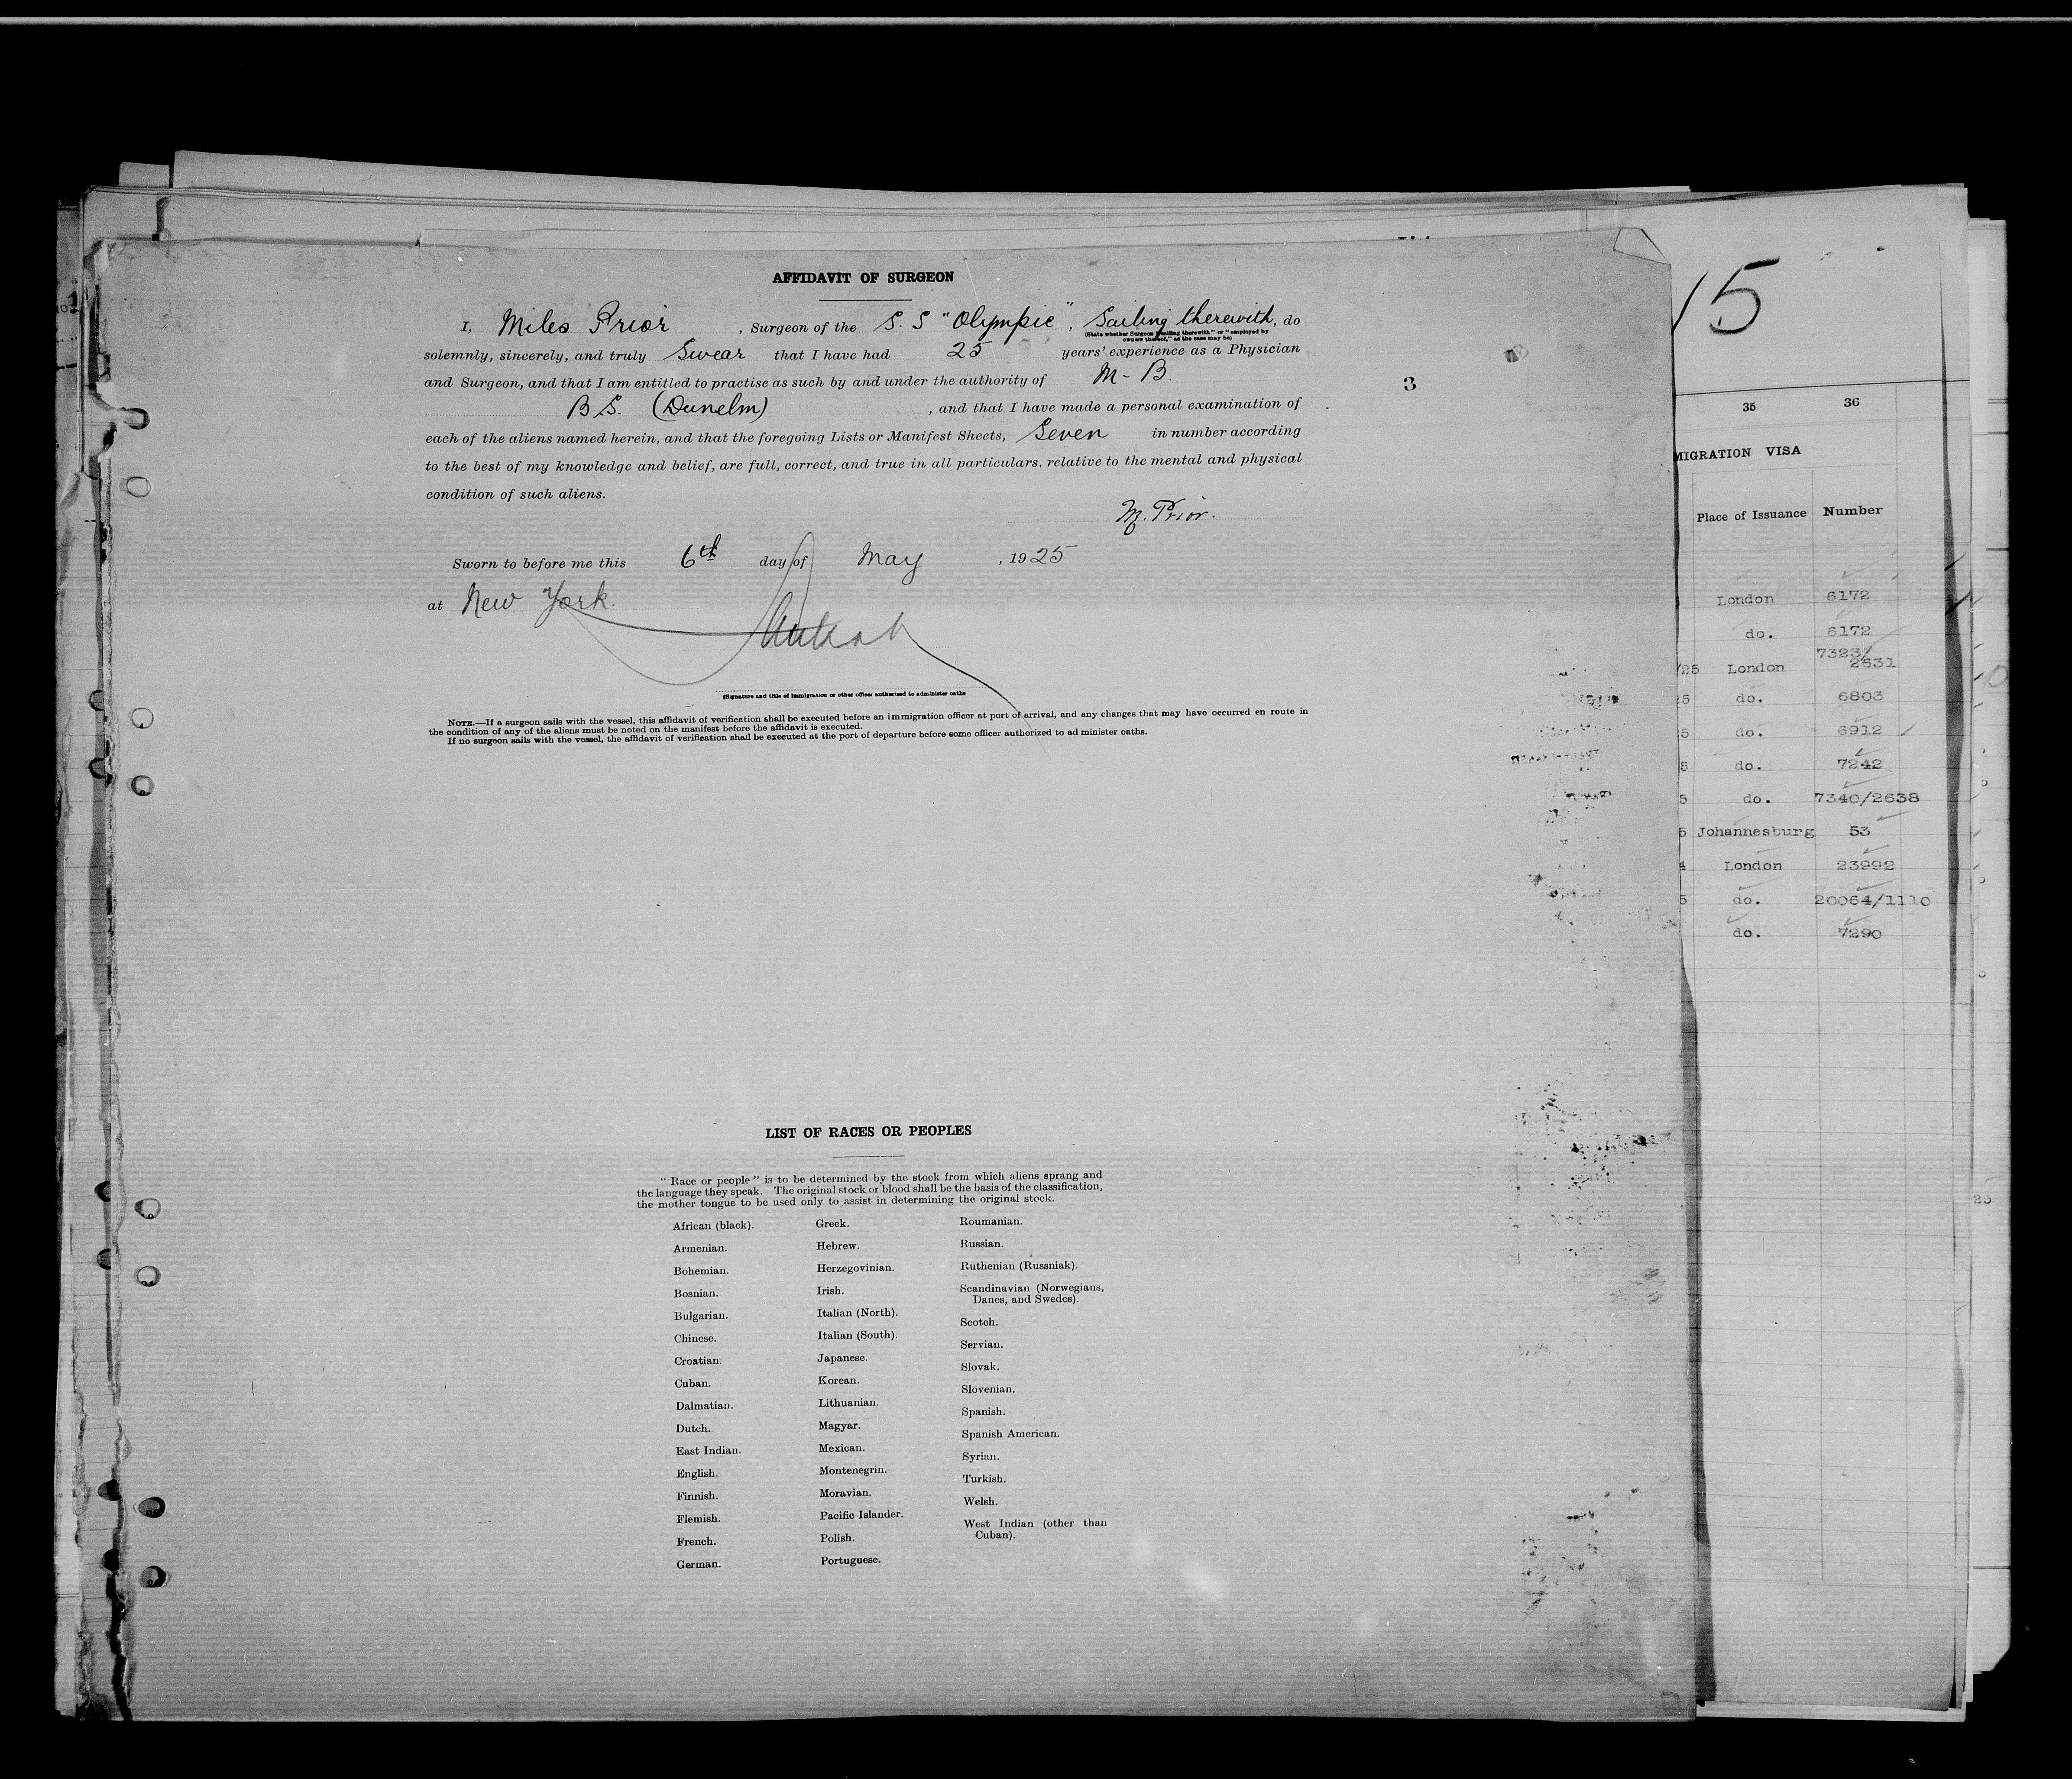 AFFIDAVIT OF SURGEON
I, Miles Prior, Surgeon of the S.S "Olympic", Sailing therewith, do
(State whether Surgeon "sailing therewith" or "employed by
owners thereof," as the case may be)
solemnly, sincerely, and truly Swear that I have had 25 years' experience as a Physician
and Surgeon, and that I am entitled to practise as such by and under the authority of M-B.
B S. (Dunelm), and that I have made a personal examination of
each of the aliens named herein, and that the foregoing Lists or Manifest Sheets, Seven in number according
to the best of my knowledge and belief, are full, correct, and true in all particulars, relative to the mental and physical
condition of such aliens.
M. Prior.
Sworn to before me this 6th day of May, 1925
at New York.
(Signature and title of immigration or other officer authorized to administer oaths
NOTE.—If a surgeon sails with the vessel, this affidavit of verification shall be executed before an immigration officer at port of arrival, and any changes that may have occurred en route in
the condition of any of the aliens must be noted on the manifest before the affidavit is executed.
If no surgeon sails with the vessel, the affidavit of verification shall be executed at the port of departure before some officer authorized to administer oaths.
3
LIST OF RACES OR PEOPLES
"Race or people" is to be determined by the stock from which aliens sprang and
the language they speak. The original stock or blood shall be the basis of the classification,
the mother tongue to be used only to assist in determining the original stock.
African (black).
Armenian.
Bohemian.
Bosnian.
Bulgarian.
Chinese.
Croatian.
Cuban.
Dalmatian.
Dutch.
East Indian.
English.
Finnish.
Flemish.
French.
German.
Greek.
Hebrew.
Herzegovinian.
Irish.
Italian (North).
Italian (South).
Japanese.
Korean.
Lithuanian.
Magyar.
Mexican.
Montenegrin.
Moravian.
Pacific Islander.
Polish.
Portuguese.
Roumanian.
Russian.
Ruthenian (Russniak).
Scandinavian (Norwegians,
Danes, and Swedes).
Scotch.
Servian.
Slovak.
Slovenian.
Spanish.
Spanish American.
Syrian.
Turkish.
Welsh.
West Indian (other than
Cuban).
15
35 36
MIGRATION VISA
Place of Issuance Number
London 6172
do. 6172
/25 London 7323/
2631
5 do. 6803
5 do. 6912
5 do. 7242
5 do. 7340/2638
5 Johannesburg 53
4 London 23992
5 do. 20064/1110
do. 7290
25